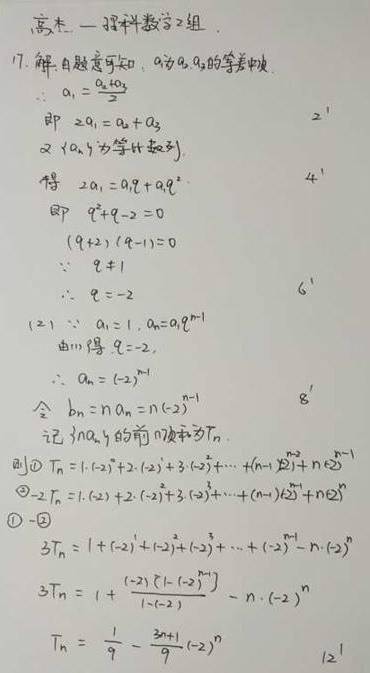 高杰 — 理科数学2组.
17. 解: 由题意可知, a₁为a₂,a₃的等差中项.
∴ a₁ = (a₂+a₃)/2
即 2a₁ = a₂+a₃ 2'
又 {aₙ}为等比数列,
得 2a₁ = a₁q + a₁q² 4'
即 q²+q-2=0
(q+2)(q-1)=0
∵ q≠1
∴ q=-2 6'
(2) ∵ a₁=1, aₙ=a₁qⁿ⁻¹
由(1)得 q=-2,
∴ aₙ=(-2)ⁿ⁻¹ 8'
令 bₙ=naₙ=n(-2)ⁿ⁻¹
记{naₙ}的前n项和为Tₙ.
则① Tₙ=1·(-2)⁰+2·(-2)¹+3·(-2)²+…+(n-1)(-2)ⁿ⁻²+n(-2)ⁿ⁻¹
② -2Tₙ=1·(-2)+2·(-2)²+3·(-2)³+…+(n-1)(-2)ⁿ⁻¹+n(-2)ⁿ
①-②
3Tₙ=1+(-2)¹+(-2)²+(-2)³+…+(-2)ⁿ⁻¹-n·(-2)ⁿ
3Tₙ=1+(-2)[1-(-2)ⁿ⁻¹]/(1-(-2)) - n·(-2)ⁿ
Tₙ = 1/9 - (3n+1)/9 (-2)ⁿ 12'